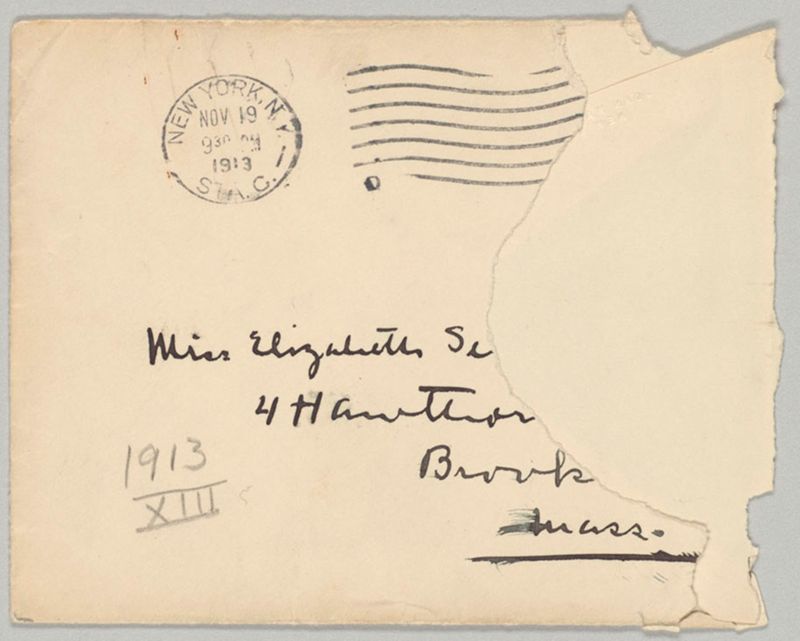 NEW YORK, N.Y.
NOV 19
9 30 PM
1913
STA. C.
Miss Elizabeth Se
4 Hawthor
Brook
Mass.
1913
XIII